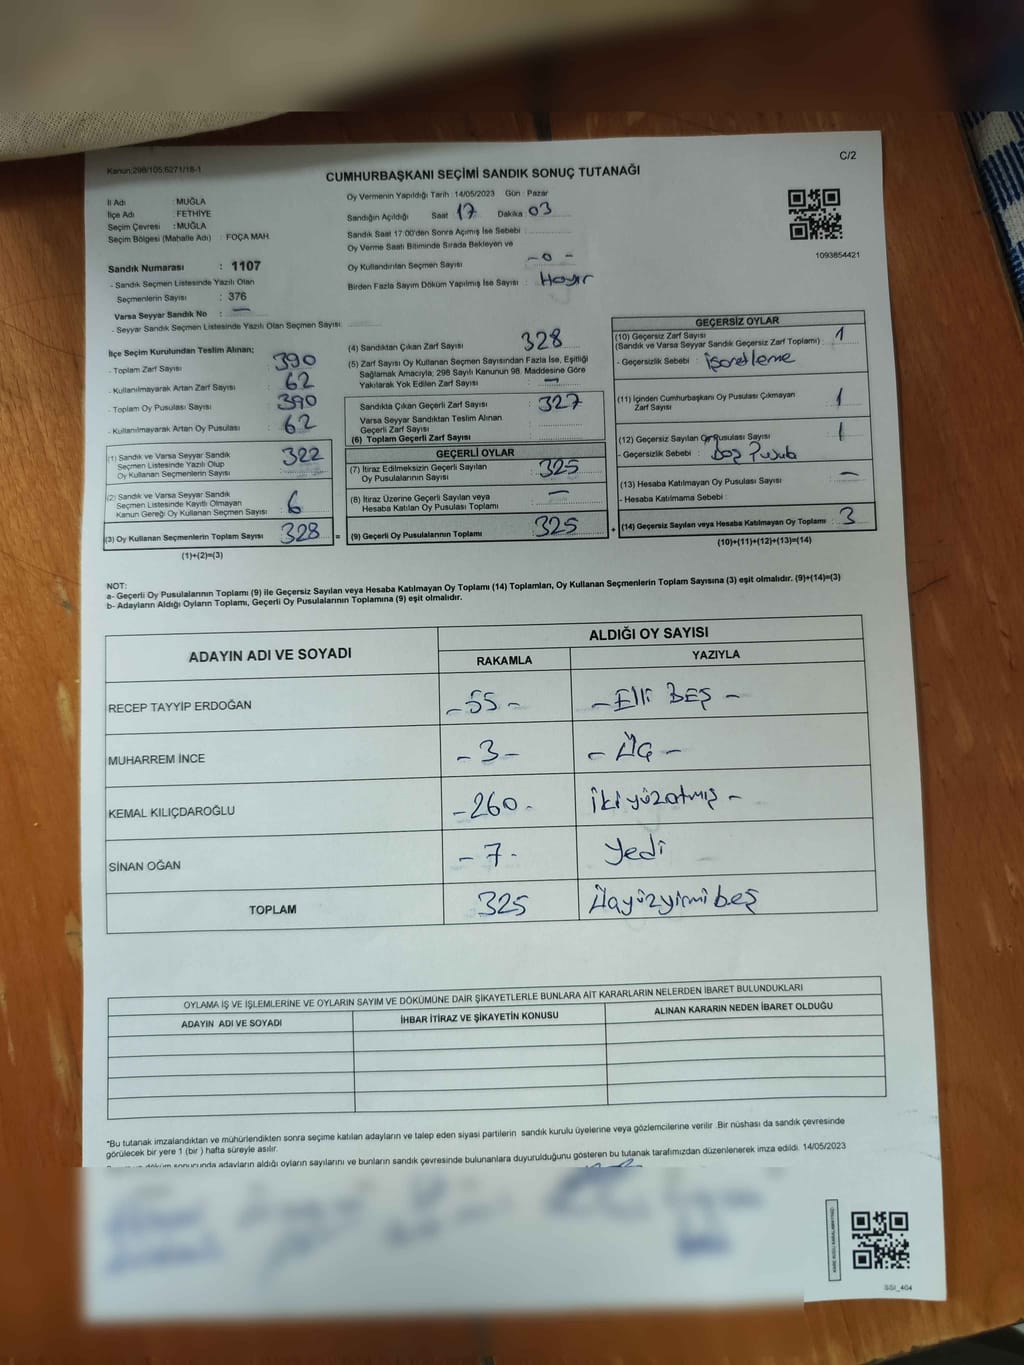 Kanun;298/105,6271/18-1
C/2
CUMHURBAŞKANI SEÇİMİ SANDIK SONUÇ TUTANAĞI
İl Adı : MUĞLA
İlçe Adı : FETHİYE
Seçim Çevresi : MUĞLA
Seçim Bölgesi (Mahalle Adı) : FOÇA MAH.
Sandık Numarası : 1107
- Sandık Seçmen Listesinde Yazılı Olan
Seçmenlerin Sayısı : 376
Varsa Seyyar Sandık No : —
- Seyyar Sandık Seçmen Listesinde Yazılı Olan Seçmen Sayısı
Oy Vermenin Yapıldığı Tarih : 14/05/2023 Gün : Pazar
Sandığın Açıldığı Saat 17 Dakika 03
Sandık Saat 17:00'den Sonra Açımış İse Sebebi :
Oy Verme Saati Bitiminde Sırada Bekleyen ve
Oy Kullandırılan Seçmen Sayısı : -0-
Birden Fazla Sayım Döküm Yapılmış İse Sayısı : Hayır
1093854421
İlçe Seçim Kurulundan Teslim Alınan;
- Toplam Zarf Sayısı : 390
- Kullanılmayarak Artan Zarf Sayısı : 62
- Toplam Oy Pusulası Sayısı : 390
- Kullanılmayarak Artan Oy Pusulası : 62
(1) Sandık ve Varsa Seyyar Sandık
Seçmen Listesinde Yazılı Olup
Oy Kullanan Seçmenlerin Sayısı : 322
(2) Sandık ve Varsa Seyyar Sandık
Seçmen Listesinde Kayıtlı Olmayan
Kanun Gereği Oy Kullanan Seçmen Sayısı : 6
(3) Oy Kullanan Seçmenlerin Toplam Sayısı : 328
(1)+(2)=(3)
(4) Sandıktan Çıkan Zarf Sayısı : 328
(5) Zarf Sayısı Oy Kullanan Seçmen Sayısından Fazla İse, Eşitliği
Sağlamak Amacıyla; 298 Sayılı Kanunun 98. Maddesine Göre
Yakılarak Yok Edilen Zarf Sayısı : —
Sandıkta Çıkan Geçerli Zarf Sayısı : 327
Varsa Seyyar Sandıktan Teslim Alınan
Geçerli Zarf Sayısı :
(6) Toplam Geçerli Zarf Sayısı :
GEÇERLİ OYLAR
(7) İtiraz Edilmeksizin Geçerli Sayılan
Oy Pusulalarının Sayısı : 325
(8) İtiraz Üzerine Geçerli Sayılan veya
Hesaba Katılan Oy Pusulası Toplamı : —
= (9) Geçerli Oy Pusulalarının Toplamı : 325
GEÇERSİZ OYLAR
(10) Geçersiz Zarf Sayısı
(Sandık ve Varsa Seyyar Sandık Geçersiz Zarf Toplamı) : 1
- Geçersizlik Sebebi : işaretleme
(11) İçinden Cumhurbaşkanı Oy Pusulası Çıkmayan
Zarf Sayısı : 1
(12) Geçersiz Sayılan Oy Pusulası Sayısı : 1
- Geçersizlik Sebebi : Boş Pusula
(13) Hesaba Katılmayan Oy Pusulası Sayısı : —
- Hesaba Katılmama Sebebi :
+ (14) Geçersiz Sayılan veya Hesaba Katılmayan Oy Toplamı : 3
(10)+(11)+(12)+(13)=(14)
NOT:
a- Geçerli Oy Pusulalarının Toplamı (9) ile Geçersiz Sayılan veya Hesaba Katılmayan Oy Toplamı (14) Toplamları, Oy Kullanan Seçmenlerin Toplam Sayısına (3) eşit olmalıdır. (9)+(14)=(3)
b- Adayların Aldığı Oyların Toplamı, Geçerli Oy Pusulalarının Toplamına (9) eşit olmalıdır.
ADAYIN ADI VE SOYADI
ALDIĞI OY SAYISI
RAKAMLA YAZIYLA
RECEP TAYYİP ERDOĞAN -55- -Elli BEŞ-
MUHARREM İNCE -3- -Üç-
KEMAL KILIÇDAROĞLU -260- ikiyüzatmış-
SİNAN OĞAN -7- Yedi
TOPLAM 325 Üçyüzyirmibeş
OYLAMA İŞ VE İŞLEMLERİNE VE OYLARIN SAYIM VE DÖKÜMÜNE DAİR ŞİKAYETLERLE BUNLARA AİT KARARLARIN NELERDEN İBARET BULUNDUKLARI
ADAYIN ADI VE SOYADI İHBAR İTİRAZ VE ŞİKAYETİN KONUSU ALINAN KARARIN NEDEN İBARET OLDUĞU
*Bu tutanak imzalandıktan ve mühürlendikten sonra seçime katılan adayların ve talep eden siyasi partilerin sandık kurulu üyelerine veya gözlemcilerine verilir .Bir nüshası da sandık çevresinde
görülecek bir yere 1 (bir ) hafta süreyle asılır.
döküm sonucunda adayların aldığı oyların sayılarını ve bunların sandık çevresinde bulunanlara duyurulduğunu gösteren bu tutanak tarafımızdan düzenlenerek imza edildi. 14/05/2023
SSI_404